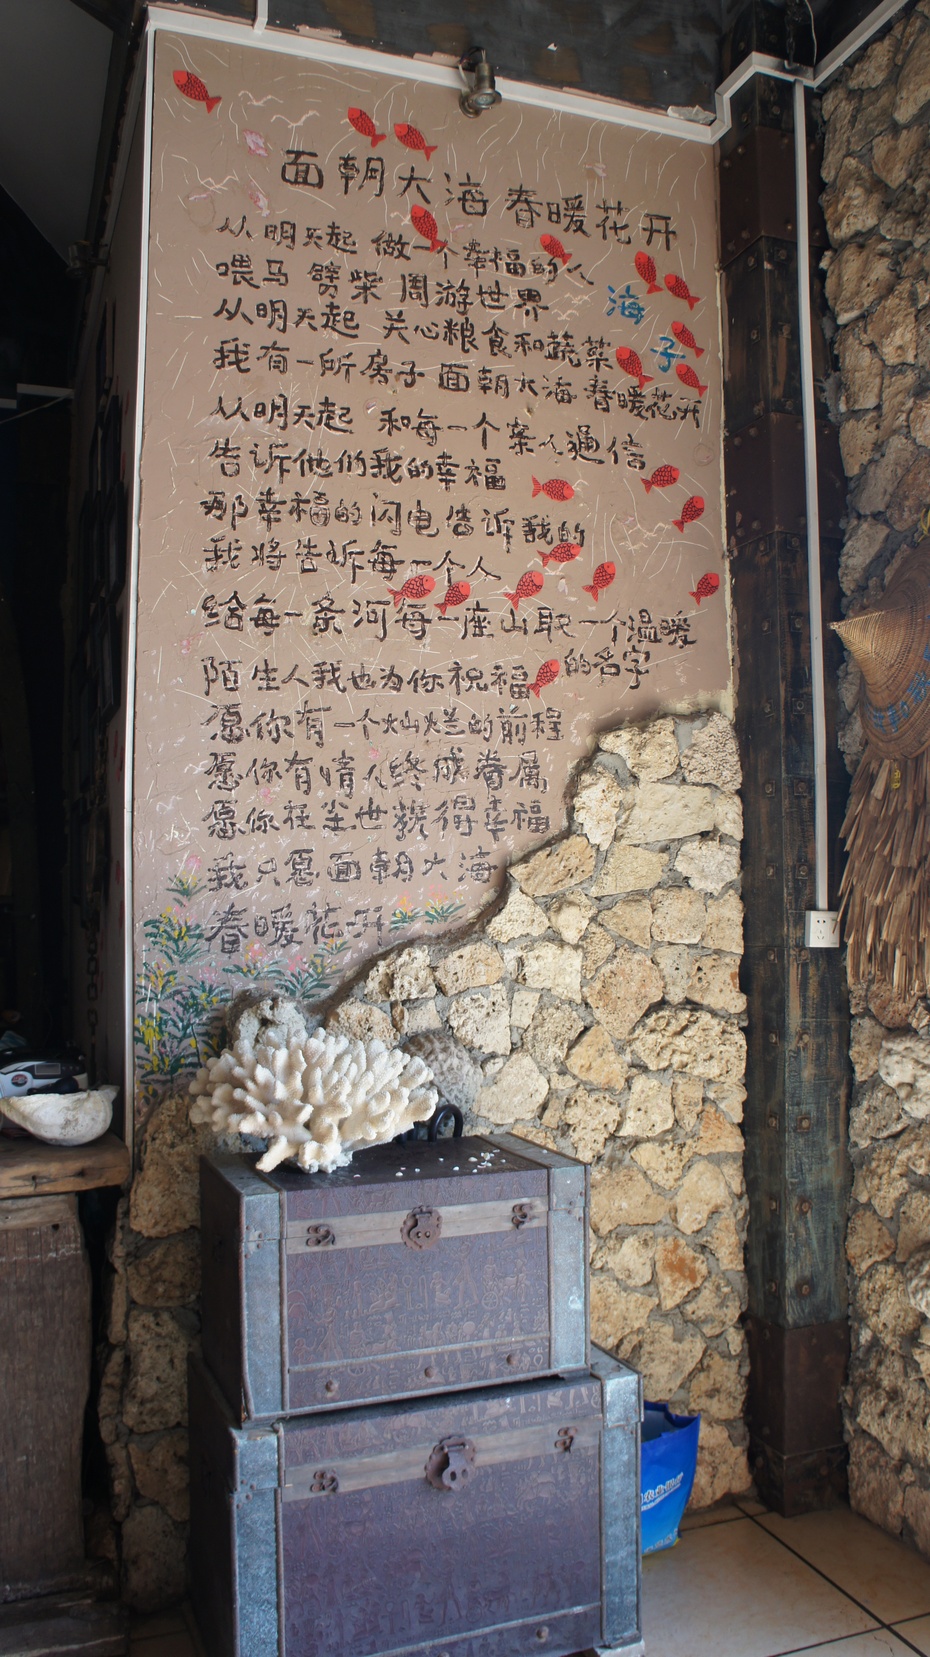 面朝大海 春暖花开
海子
从明天起 做一个幸福的人
喂马 劈柴 周游世界
从明天起 关心粮食和蔬菜
我有一所房子 面朝大海 春暖花开
从明天起 和每一个亲人通信
告诉他们我的幸福
那幸福的闪电告诉我的
我将告诉每一个人
给每一条河每一座山取一个温暖
的名字
陌生人我也为你祝福
愿你有一个灿烂的前程
愿你有情人终成眷属
愿你在尘世获得幸福
我只愿面朝大海
春暖花开